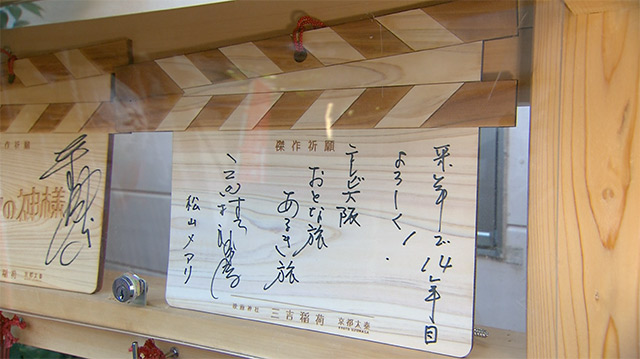 傑作祈願
来年で14年目
よろしく!
テレビ大阪
おとな旅
あるき旅
三田村邦彦
松山メアリ
三吉稲荷 京都太秦
作祈願
の神様
京都太秦